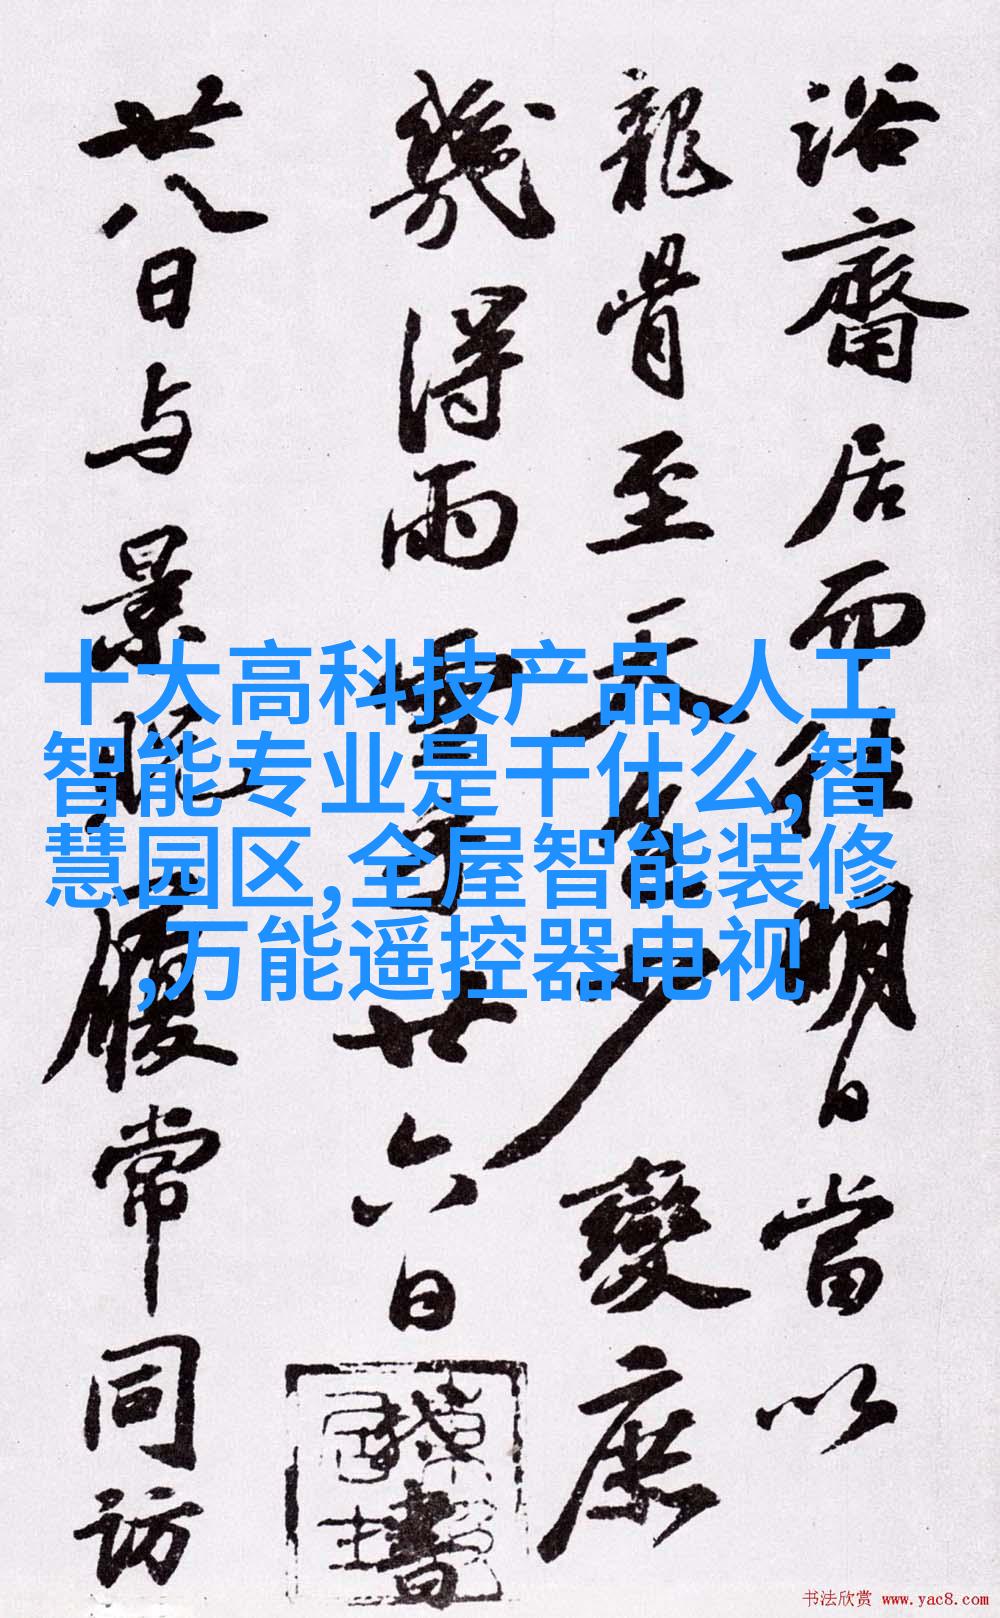 浴齋居而往明日當以
龍骨至天少變庶
幾得雨雪廿六日書
廿八日与景履常同訪
十大高科技产品,人工
智能专业是干什么,智
慧园区,全屋智能装修
,万能遥控器电视
书法欣赏 www.yac8.com